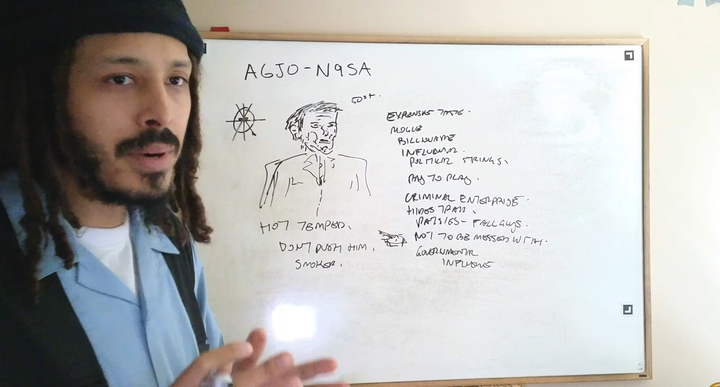 AGJO-N9SA
50s+.
EXPENSIVE TASTE.
MOGUL
BILLIONAIRE
INFLUENTIAL.
POLITICAL STRINGS.
PAY TO PLAY.
CRIMINAL ENTERPRISE.
HIDES TRAIL,
PATSIES - FALL GUYS.
NOT TO BE MESSED WITH.
GOVERNMENTAL
INFLUENCE
HOT TEMPER.
DON'T PUSH HIM.
SMOKER.